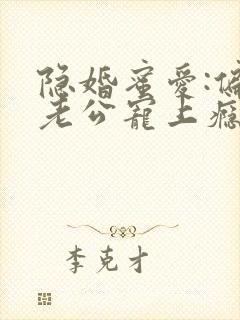 隐婚蜜爱:偏
老公宠上瘾
李克才